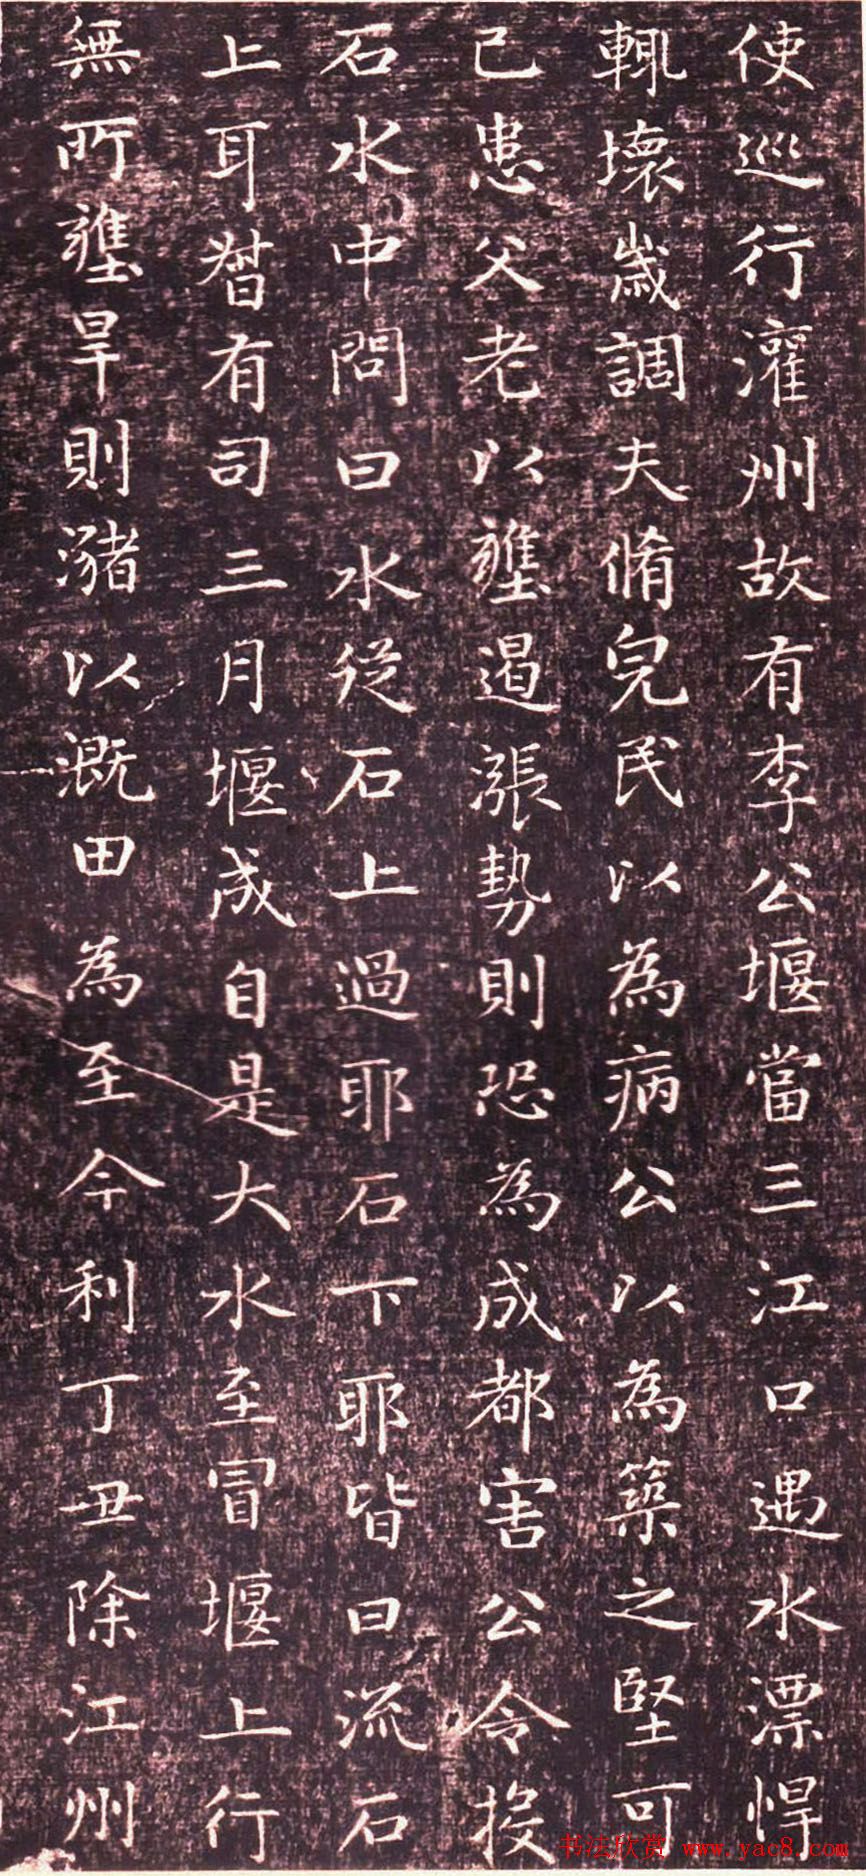 使巡行灌州故有李公堰當三江口遇水漂悍
輒壞歲調夫脩完民以為病公以為築之堅可
已患父老以壅遏漲勢則恐為成都害公令投
石水中問曰水從石上過耶石下耶皆曰流石
上耳督有司三月堰成自是大水至冒堰上行
無所壅旱則瀦以溉田為至今利丁丑除江州
书法欣赏 www.yac8.com